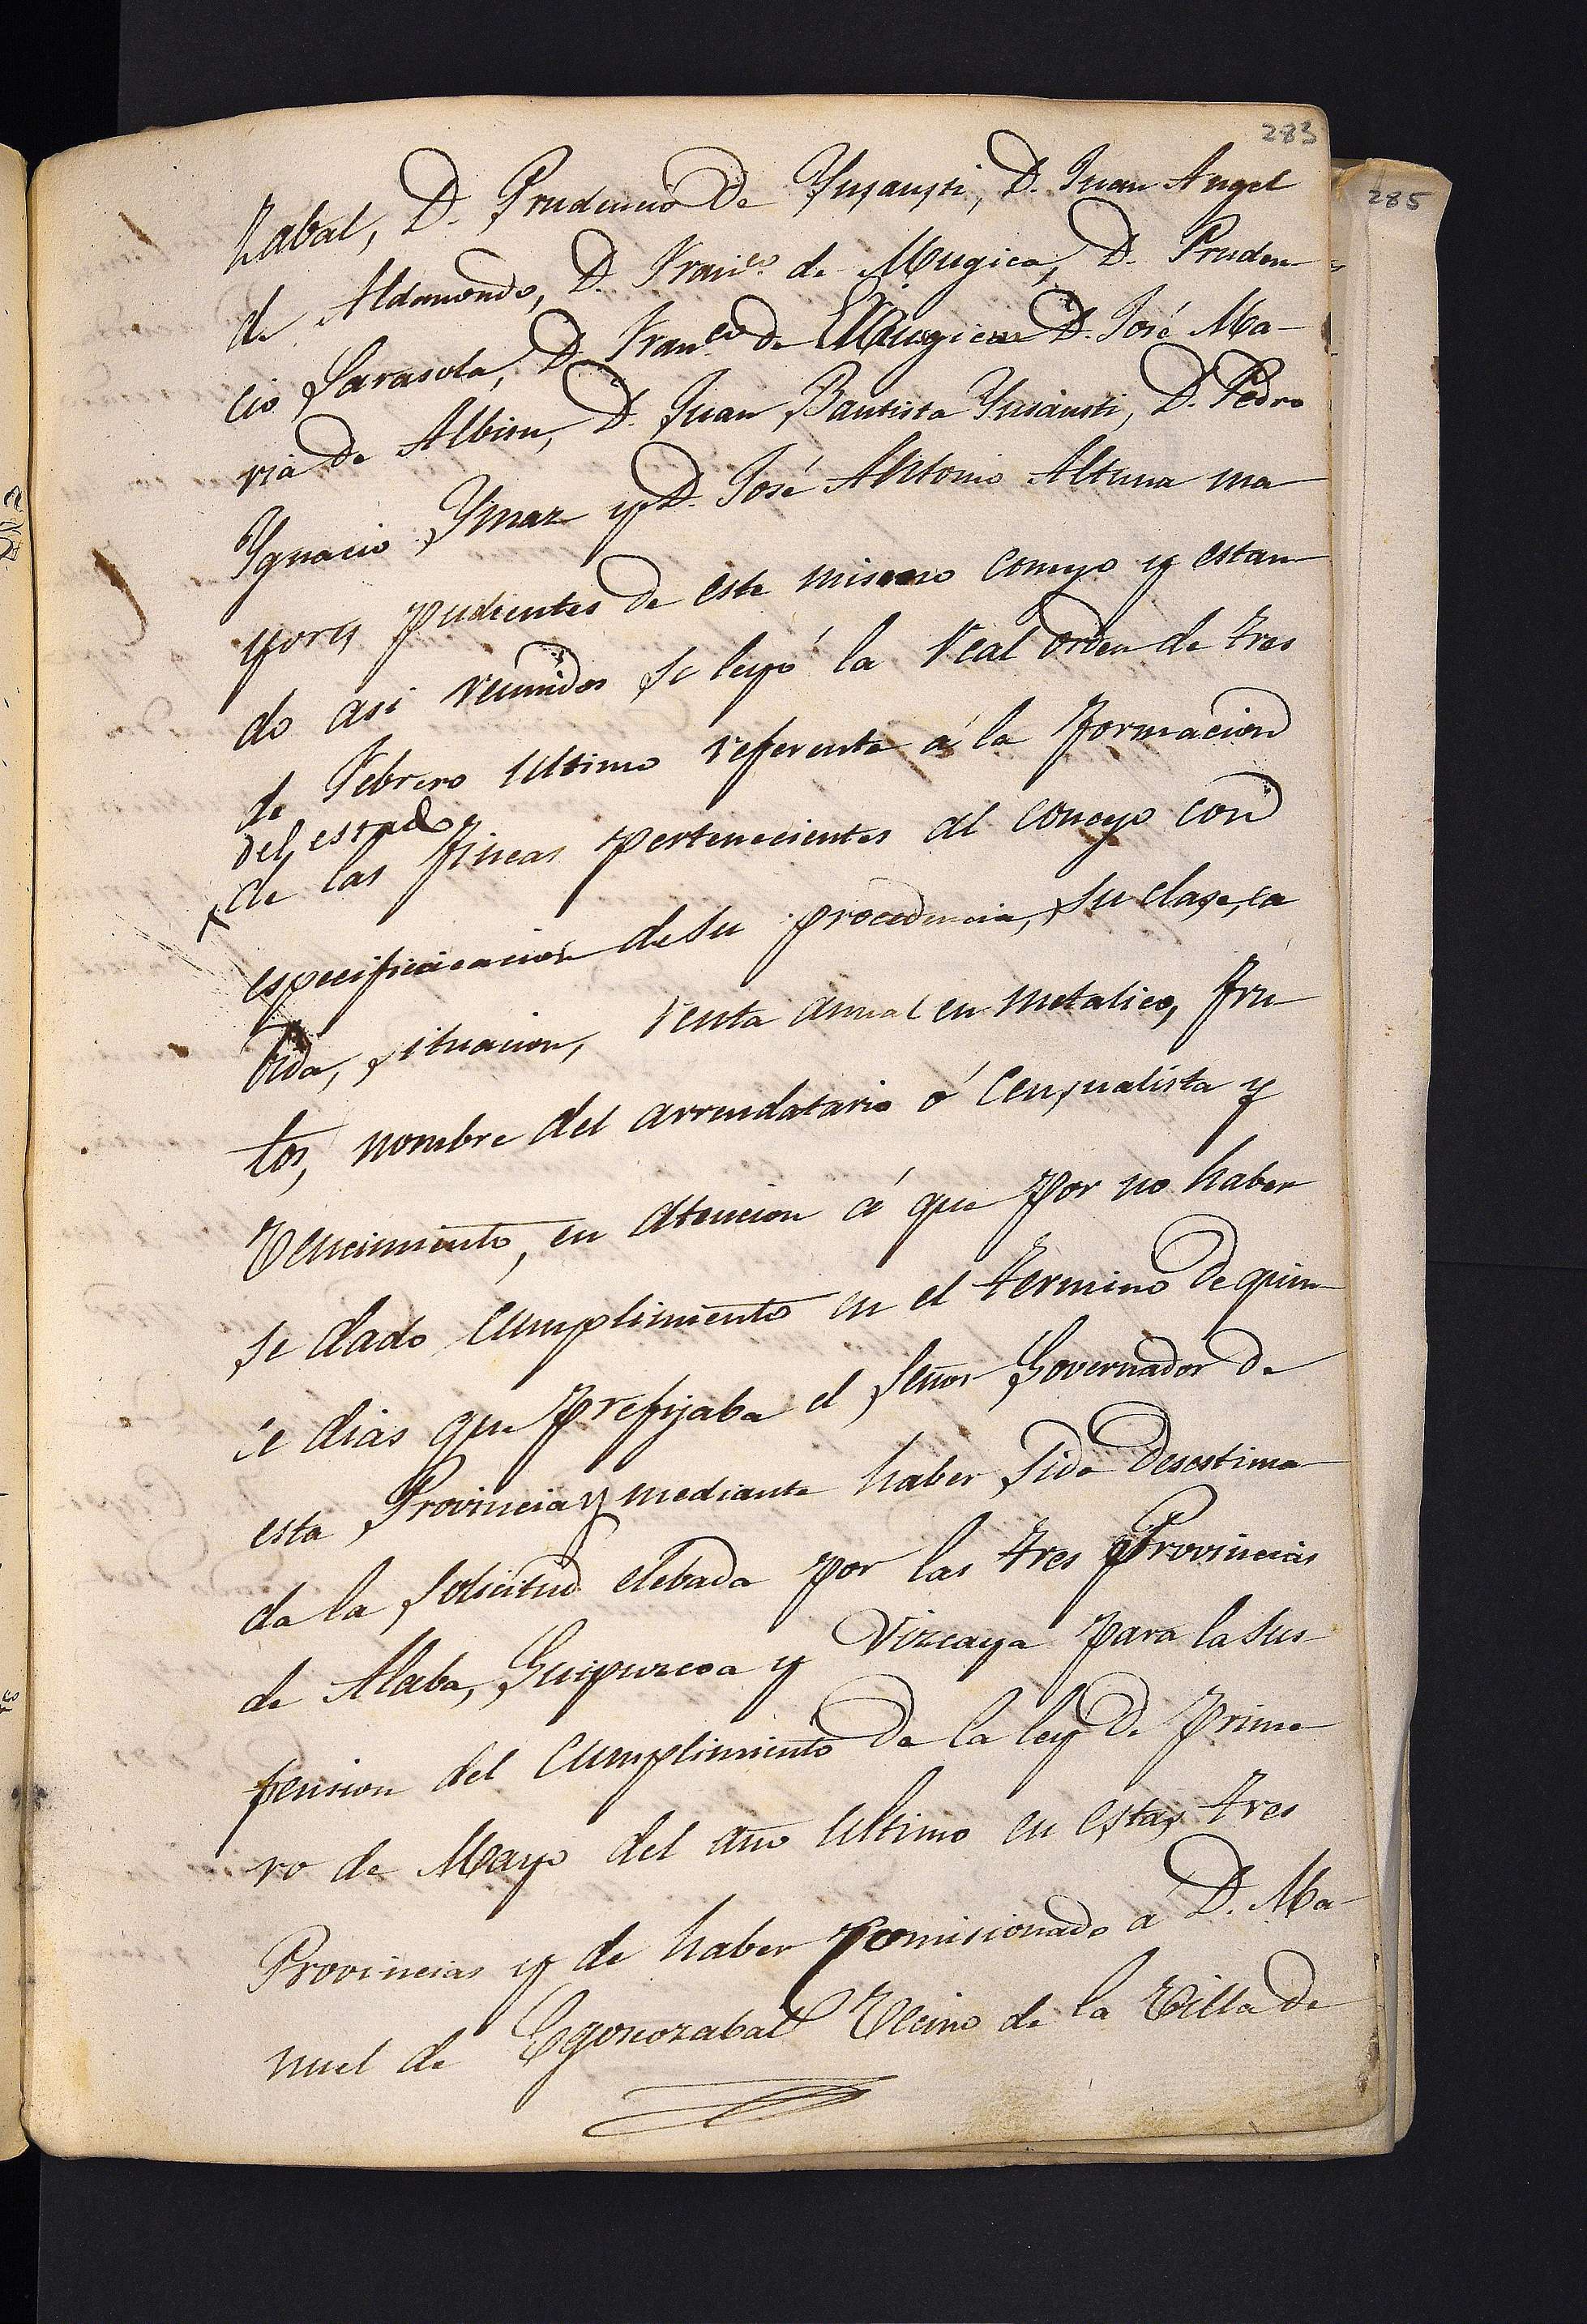 283
285
zabal, D. Prudencio de Ynsausti, D. Juan Angel
de Aldamondo, D. Franco. de Mugica, D. Pruden-
cio Sarasola, D. Franco. de Mugica D. José Ma-
ria de Albisu, D. Juan Bautista Ynsausti, D. Pedro
Ygnacio Ymaz y D. José Antonio Altuna ma
yores pudientes de este mismo consejo y estan
do asi reunidos se leyó la Real orden de tres
de Febrero ultimo referente á la formacion
del estado
de las fincas pertenecientes al concejo con
especificicacion de su procedencia, su clase, ca
bida, situacion, renta anual en metalico, fru
tos, nombre del arrendatario ó Censualista y
Vencimiento, en atencion á que por no haber
se dado cumplimiento en el termino de quin
ce dias que prefijaba el Señor Governador de
esta Provincia y mediante haber sido desestima
da la solicitud elebada por las tres Provincias
de Alaba, Guipuzcoa y Vizcaya para la sus
pension del cumplimiento de la ley de prime
ro de Mayo del año ultimo en estas tres
Provincias y de haber comisionado á D. Ma-
nuel de Egoscozabal Vecino de la Villa de